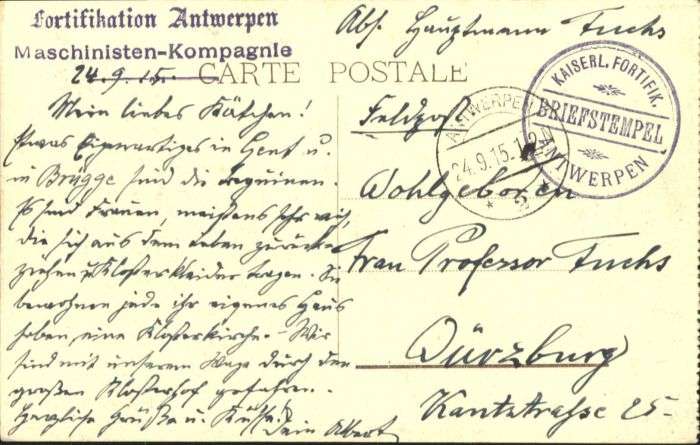 Fortifikation Antwerpen
Maschinisten-Kompagnie
Abs. Hauptmann Fuchs
24.9.15.
CARTE POSTALE
Mein liebes Käthchen!
Etwas Eigenartiges in Gent u.
in Brügge sind die Beguinen.
Es sind Frauen, meistens sehr reich,
die sich aus dem Leben zurück-
ziehen u. Klosterkleider tragen. Sie
bewohnen jede ihr eigenes Haus
haben eine Klosterkirche. - Wir
sind mit unserem Wagen durch den
großen Klosterhof gefahren.
Herzliche Grüße u. Küsse
Dein Albert
Feldpost
ANTWERPEN
24.9.15.
* 2
KAISERL. FORTIFIK.
BRIEFSTEMPEL
ANTWERPEN
Wohlgeboren
Frau Professor Fuchs
Würzburg
Kantstraße 25-